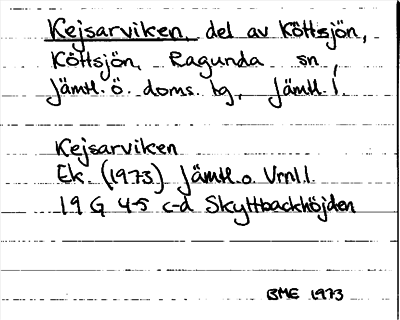 Kejsarviken, del av Köttsjön,
Köttsjön, Ragunda sn,
Jämtl. ö. doms. tg, Jämtl. l.
Kejsarviken
Ek. (1973) Jämtl. o. Vrnl l.
19 G 4-5 c-d Skyttbackhöjden
BME 1973